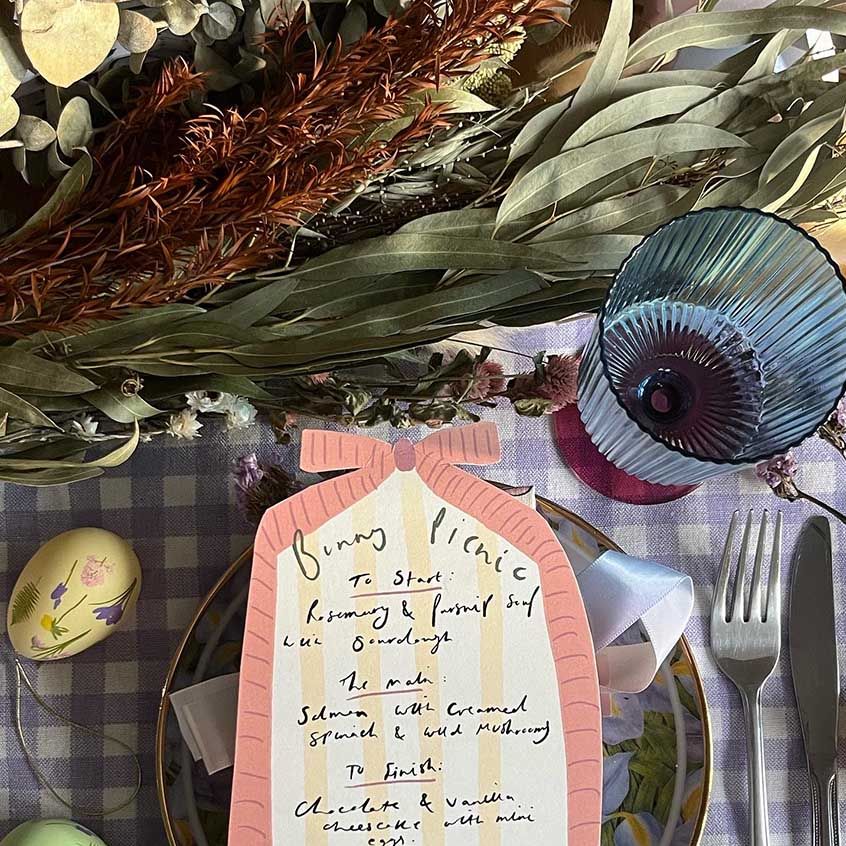 Bunny Picnic
To Start:
Rosemary & Parsnip Soup
with Sourdough
The Main:
Salmon with Creamed
Spinach & Wild Mushrooms
To Finish:
Chocolate & Vanilla
cheesecake with mini
eggs.